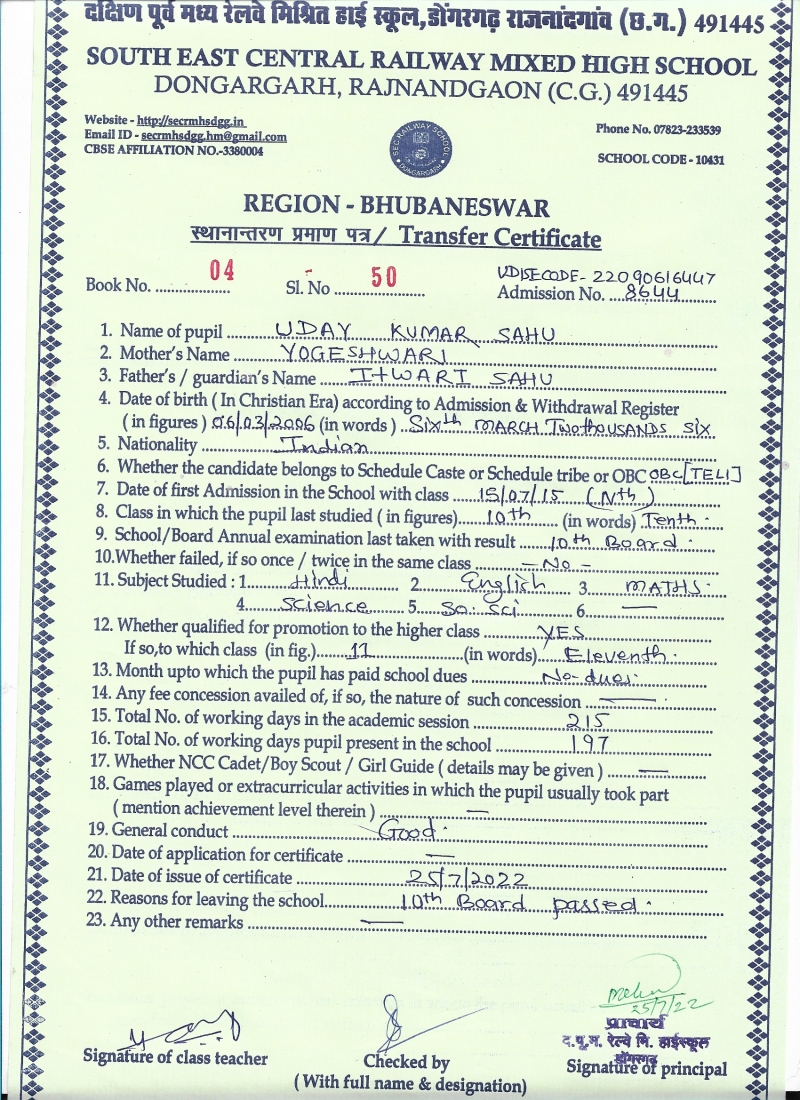 दक्षिण पूर्व मध्य रेलवे मिश्रित हाई स्कूल,डोंगरगढ़ राजनांदगांव (छ.ग.) 491445
SOUTH EAST CENTRAL RAILWAY MIXED HIGH SCHOOL
DONGARGARH, RAJNANDGAON (C.G.) 491445
Website - http://secrmhsdgg.in
Email ID - secrmhsdgg.hm@gmail.com
CBSE AFFILIATION NO.-3380004
SEC.RAILWAY SCHOOL
DONGARGARH
Phone No. 07823-233539
SCHOOL CODE - 10431
REGION - BHUBANESWAR
स्थानान्तरण प्रमाण पत्र / Transfer Certificate
UDISECODE- 22090616447
Book No. 04 Sl. No 50 Admission No. 8644
1. Name of pupil UDAY KUMAR SAHU
2. Mother's Name YOGESHWARI
3. Father's / guardian's Name ITWARI SAHU
4. Date of birth ( In Christian Era) according to Admission & Withdrawal Register
( in figures ) 06/03/2006 (in words ) Sixth MARCH Twothousands SIX
5. Nationality Indian
6. Whether the candidate belongs to Schedule Caste or Schedule tribe or OBC OBC[TELI]
7. Date of first Admission in the School with class 15/07/15 (Nth)
8. Class in which the pupil last studied ( in figures) 10th (in words) Tenth.
9. School/Board Annual examination last taken with result 10th Board.
10.Whether failed, if so once / twice in the same class - No -
11. Subject Studied : 1. Hindi 2. English 3. MATHS.
4. Science 5. So. Sci 6. —
12. Whether qualified for promotion to the higher class YES
If so,to which class (in fig.) 11 (in words) Eleventh.
13. Month upto which the pupil has paid school dues No-dues.
14. Any fee concession availed of, if so, the nature of such concession —
15. Total No. of working days in the academic session 215
16. Total No. of working days pupil present in the school 197
17. Whether NCC Cadet/Boy Scout / Girl Guide ( details may be given ) —
18. Games played or extracurricular activities in which the pupil usually took part
( mention achievement level therein ) —
19. General conduct Good.
20. Date of application for certificate —
21. Date of issue of certificate 25/7/2022
22. Reasons for leaving the school 10th Board passed.
23. Any other remarks —
25/7/22
प्राचार्य
द.पू.म. रेल्वे मि. हाईस्कूल
डोंगरगढ़
Signature of class teacher
Checked by
( With full name & designation)
Signature of principal